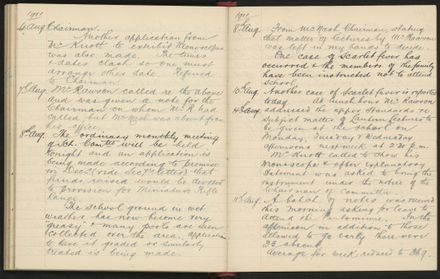 1911
4 Aug. Chairman.
Another application from
Mr Knott to exhibit Kenoscope
was also made. The times
& dates clash so one must
arrange other date. Referred
to Chairman
7 Aug. Mr Rawson called re the above
and was given a note for the
Chairman on whom Mr K. had
called but Mr Nash was absent from
his office.
8 Aug. The ordinary monthly meeting
of Sch. Com'ttee will be held
tonight and an application is
being made according to promise
in Dec. (vide Sec's letter) that
funds raised would be devoted
to provision for Miniature Rifle
Range
The school ground in wet
weather has now become very
greasy & many pools are seen
collected over the area. Application
to have it graded or similarly
treated is being made.
1911
8 Aug. From Mr Nash, Chairman, stating
that matter of lectures by Mr Rawson
was left in my hands to decide.
One case of Scarlet fever has
occurred & the members of the family
have been instructed not to attend
School.
10 Aug. Another case of Scarlet fever is reported
today
addressed the upper standards re
subject matter of Lantern lectures to
be given at the school on
Monday, Tuesday & Wednesday
afternoons next week at 2.30 p.m.
Mr Knott called to show his
Kenoscope & after explanatory
statement was asked to bring the
instrument under the notice of the
Chairman of Committee.
11 Aug. A batch of notes was received
this morning asking for leave to
attend the Pantomime. In the
afternoon in addition to those
allowed to go early there were
absent.
Average for week